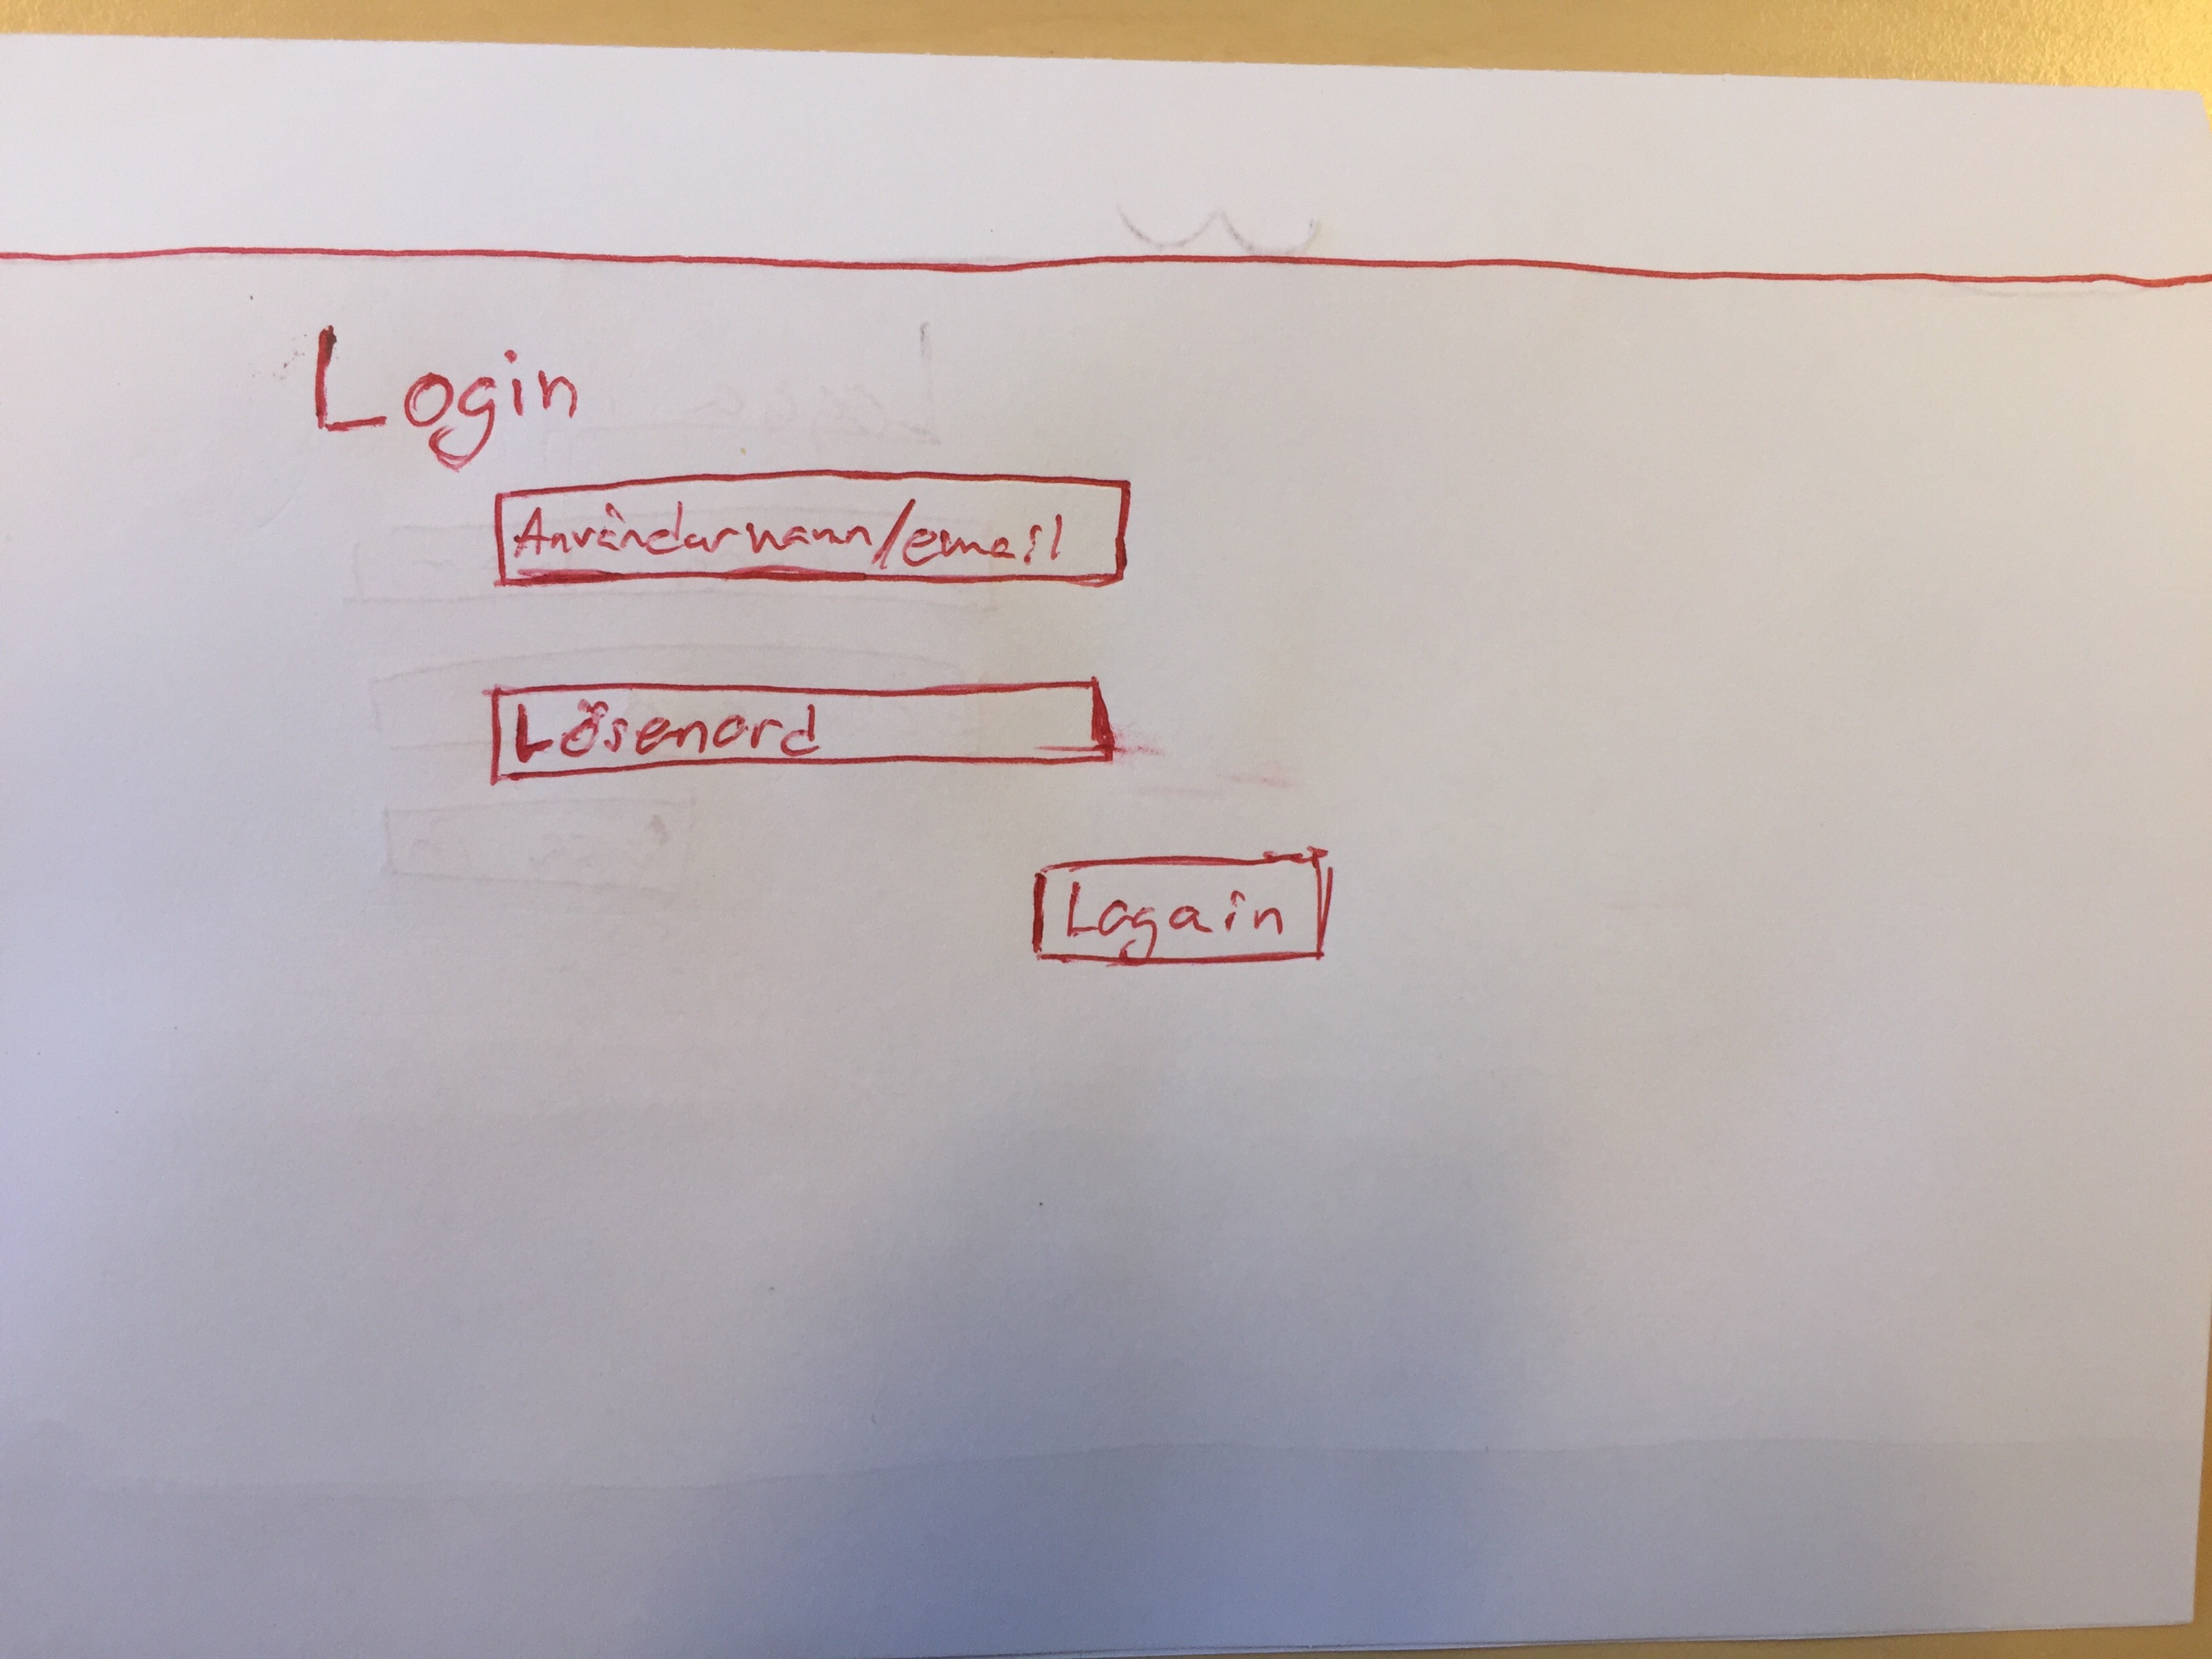 Login
Användarnamn/email
Lösenord
Logain